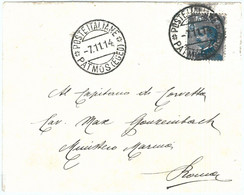 POSTE ITALIANE
PATMOS (EGEO)
-7.11.14
POSTE ITALIANE
-7.11
PATMOS
Al Capitano di Corvetta
Cav. Max Gonzenbach
Ministero Marina
Roma